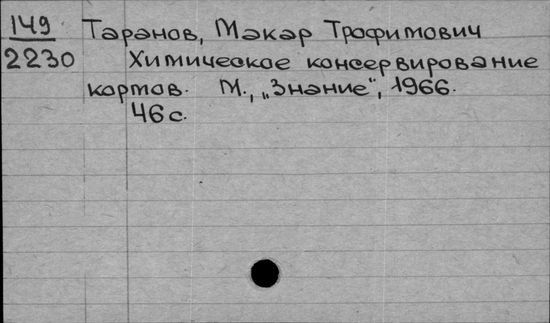 149 Таранов, Макар Трофимович
2230 Химическое консервирование
кормов. М., „Знание“, 1966.
46 с.